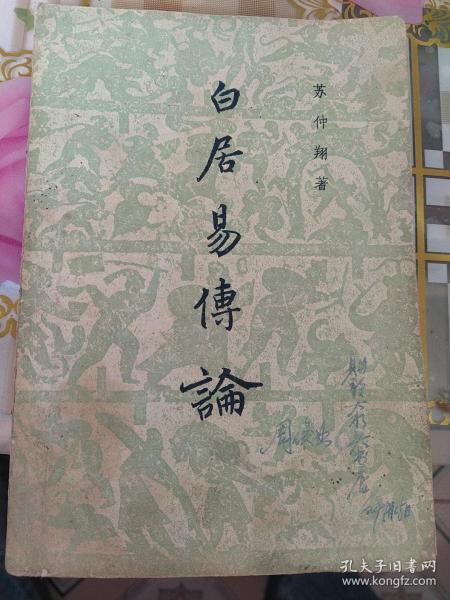 苏仲翔著
白居易傳論
孔夫子旧书网
www.kongfz.com